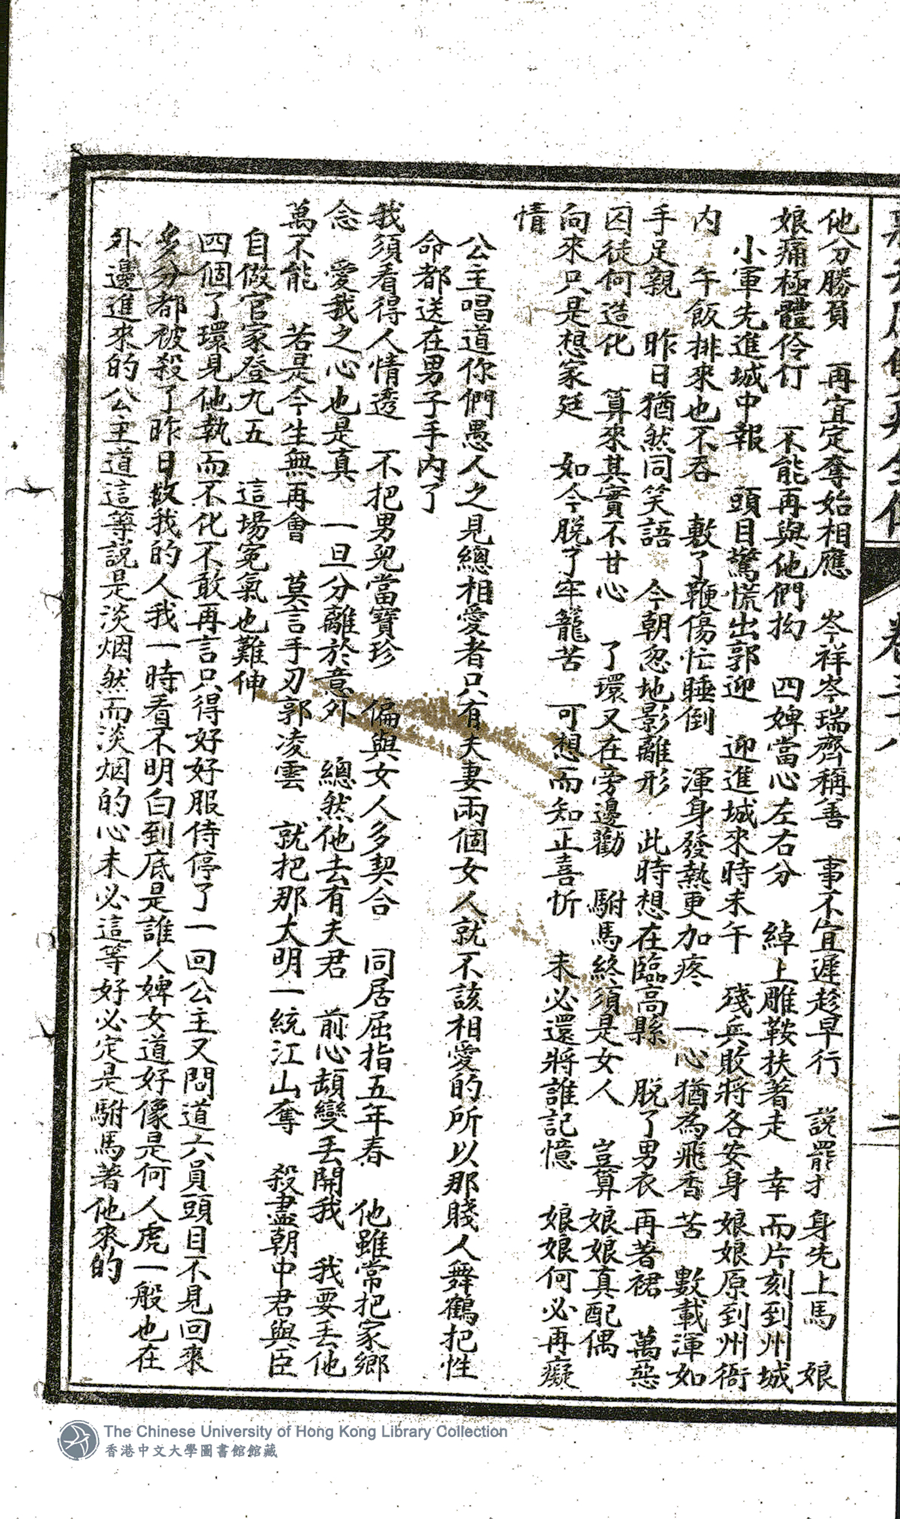 他分勝負　再宜定奪始相應　岑祥岑瑞齊稱善　事不宜遲趁早行　説罷才身先上馬　娘
娘痛極體伶仃　不能再與他們拗　四婢當心左右分　綽上雕鞍扶著走　幸而片刻到州城
小軍先進城中報　頭目驚慌出郭迎　迎進城來時未午　殘兵敗將各安身　娘娘原到州衙
内　午飯排來也不吞　敷了鞭傷忙睡倒　渾身發熱更加疼　一心猶為飛香苦　數載渾如
手足親　昨日猶然同笑語　今朝忽地影離形　此時想在臨高縣　脱了男衣再著裙　萬惡
囚徒何造化　算來其實不甘心　了環又在旁邊勸　駙馬終須是女人　豈算娘娘真配偶
向來只是想家廷　如今脱了牢籠苦　可想而知正喜忻　未必還將誰記憶　娘娘何必再癡
情
公主唱道你們愚人之見總相愛者只有夫妻兩個女人就不該相愛的所以那賤人舞鶴把性
命都送在男子手内了
我須看得人情透　不把男兒當寶珍　偏與女人多契合　同居屈指五年春　他雖常把家鄉
念　愛我之心也是真　一旦分離於意外　總然他去有夫君　前心頓變丢開我　我要丢他
萬不能　若是今生無再會　莫言手刃郭凌雲　就把那大明一統江山奪　殺盡朝中君與臣
自做官家登九五　這場寃氣也難伸
四個了環見他執而不化不敢再言只得好好服侍停了一回公主又問道六員頭目不見回來
多分都被殺了昨日救我的人我一時看不明白到底是誰人婢女道好像是何人虎一般也在
外邊進來的公主道這等説是淡烟然而淡烟的心未必這等好必定是駙馬著他來的
卷三十八
二
The Chinese University of Hong Kong Library Collection
香港中文大學圖書館館藏